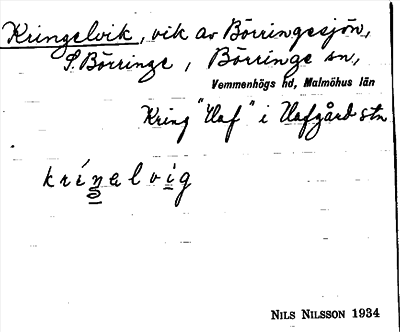 Kringelvik, vik av Börringesjön,
S. Börringe, Börringe sn,
Vemmenhögs hd, Malmöhus län
Kring "Haf" i Hafgård stn
kríŋelvig
NILS NILSSON 1934